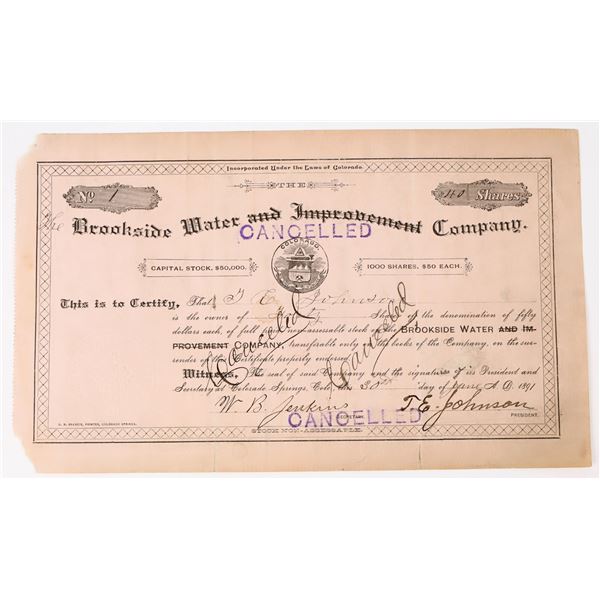 Incorporated Under the Laws of Colorado.
THE
No 1
40 Shares
The Brookside Water and Improvement Company.
CANCELLED
COLORADO
CAPITAL STOCK, $50,000.
1000 SHARES, $50 EACH.
This is to Certify, That T E Johnson
is the owner of Forty Shares of the denomination of fifty
dollars each, of full paid non-assessable stock of the BROOKSIDE WATER AND IM-
PROVEMENT COMPANY, transferable only on the books of the Company, on the sur-
render of this Certificate properly endorsed.
Cancelled
Cancelled
Witness, The seal of said Company and the signatures of its President and
Secretary at Colorado Springs, Colo. this 30th day of June A.D. 1891
W. B. Jenkins
SECRETARY.
T. E. Johnson
PRESIDENT.
CANCELLED
PRINTER, COLORADO SPRINGS.
STOCK NON-ASSESSABLE.